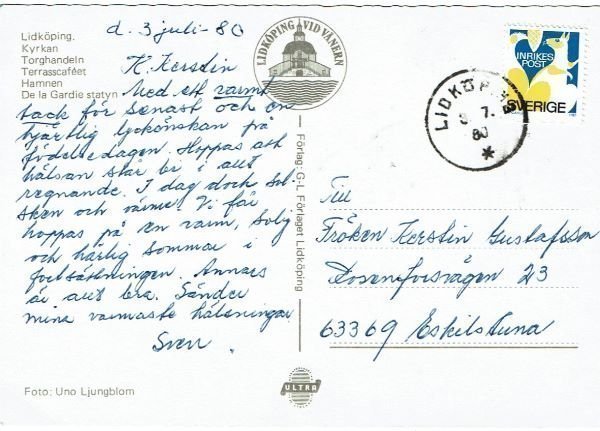 Lidköping.
Kyrkan
Torghandeln
Terrasscaféet
Hamnen
De la Gardie statyn
d. 3 juli - 80
K. Kerstin
Med ett varmt
tack för senast och en
hjärtlig lyckönskan på
födelsedagen. Hoppas att
hälsan står bi i allt
regnande. I dag dock sol-
sken och värme. Vi får
hoppas på en varm, solig
och härlig sommar i
fortsättningen. Annars
är allt bra. Sänder
mina varmaste hälsningar
Sven.
Foto: Uno Ljungblom
LIDKÖPING VID VÄNERN
Förlag: G-L Förlaget Lidköping
ULTRA
INRIKES
POST
SVERIGE
LIDKÖPING
7.
80
Till
Fröken Kerstin Gustafsson
23
63369 Eskilstuna